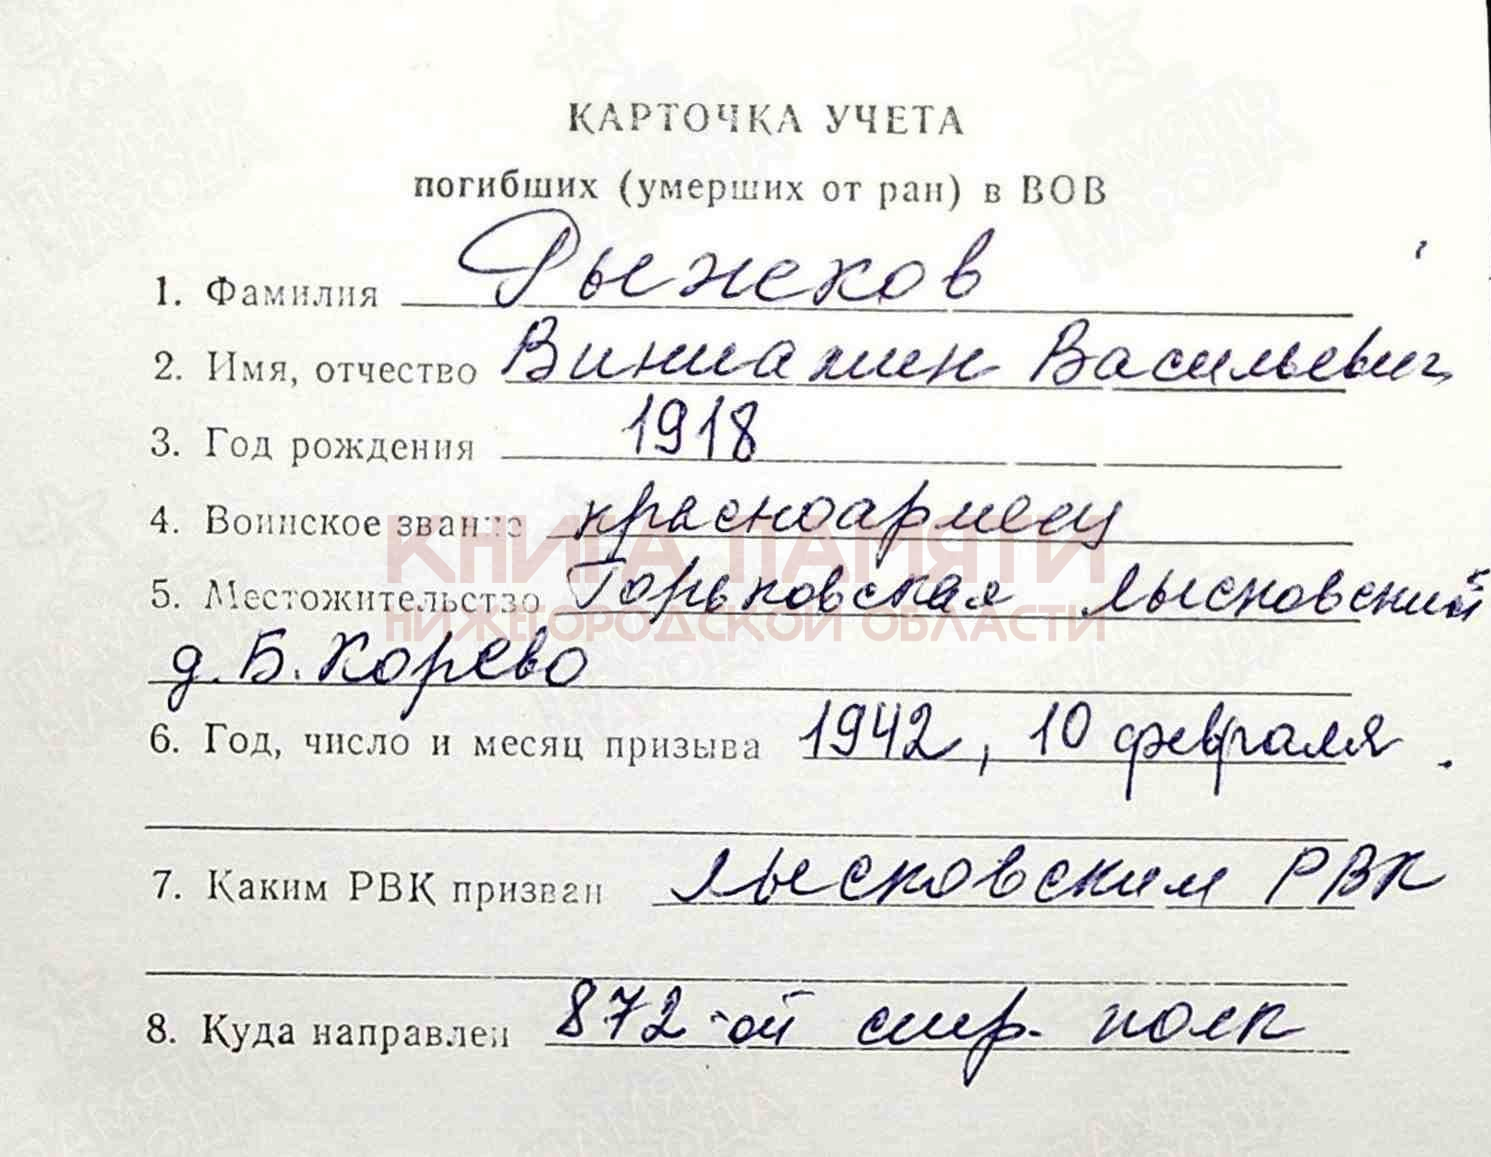 КАРТОЧКА УЧЕТА
погибших (умерших от ран) в ВОВ
1. Фамилия Рыжков
2. Имя, отчество Виниамин Васильевич
3. Год рождения 1918
4. Воинское звание красноармеец
КНИГА ПАМЯТИ
5. Местожительство Горьковская Лысковский
НИЖЕГОРОДСКОЙ ОБЛАСТИ
д. Б. Корево
6. Год, число и месяц призыва 1942, 10 февраля.
7. Каким РВК призван Лысковским РВК
8. Куда направлен 872-ой стр. полк